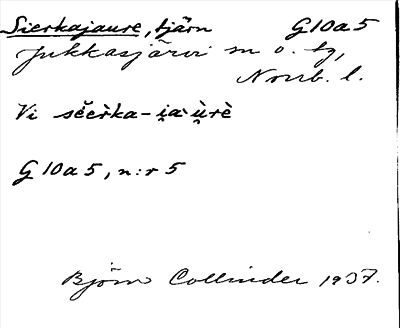 Sierkajaure, tjärn G10a5
Jukkasjärvi sn o. tg,
Norrb. l.
Vi sĕerka-i̯a ùrè
G10a5, n:r 5
Björn Collinder 1937.